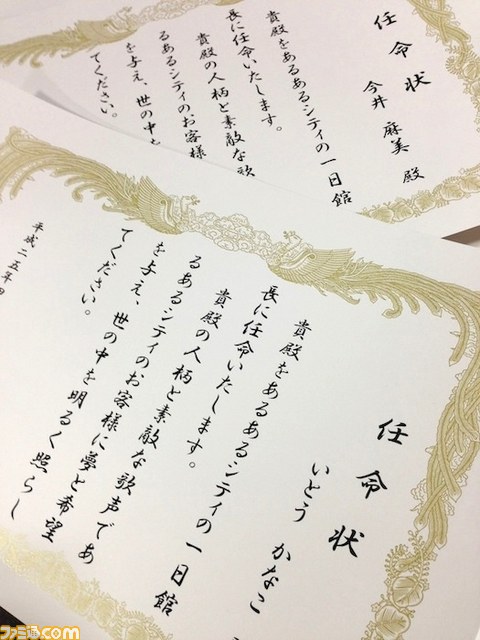 任命状
今井 麻美 殿
貴殿をあるあるシティの一日館
長に任命いたします。
貴殿の人柄と素敵な歌
るあるシティのお客様
を与え、世の中
てください。
任命状
いとう かなこ
貴殿をあるあるシティの一日館
長に任命いたします。
貴殿の人柄と素敵な歌声であ
るあるシティのお客様に夢と希望
を与え、世の中を明るく照らし
てください。
平成二五年四
ファミ通.com